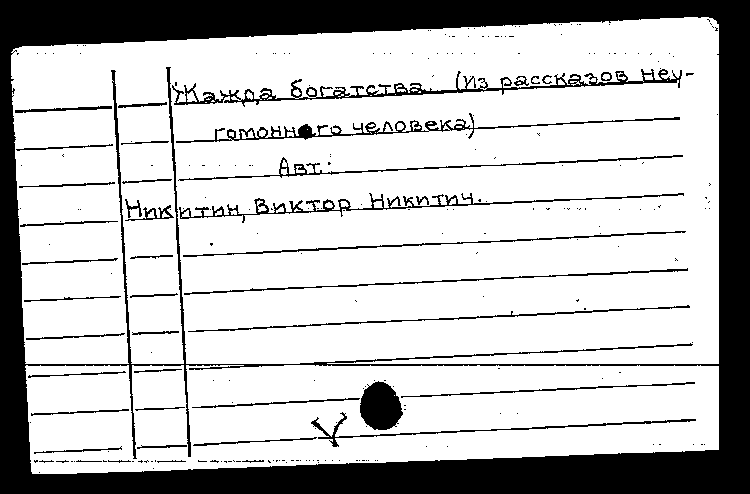 Жажда богатства. (Из рассказов неу-
гомонного человека)
Авт.:
Никитин, Виктор Никитич.